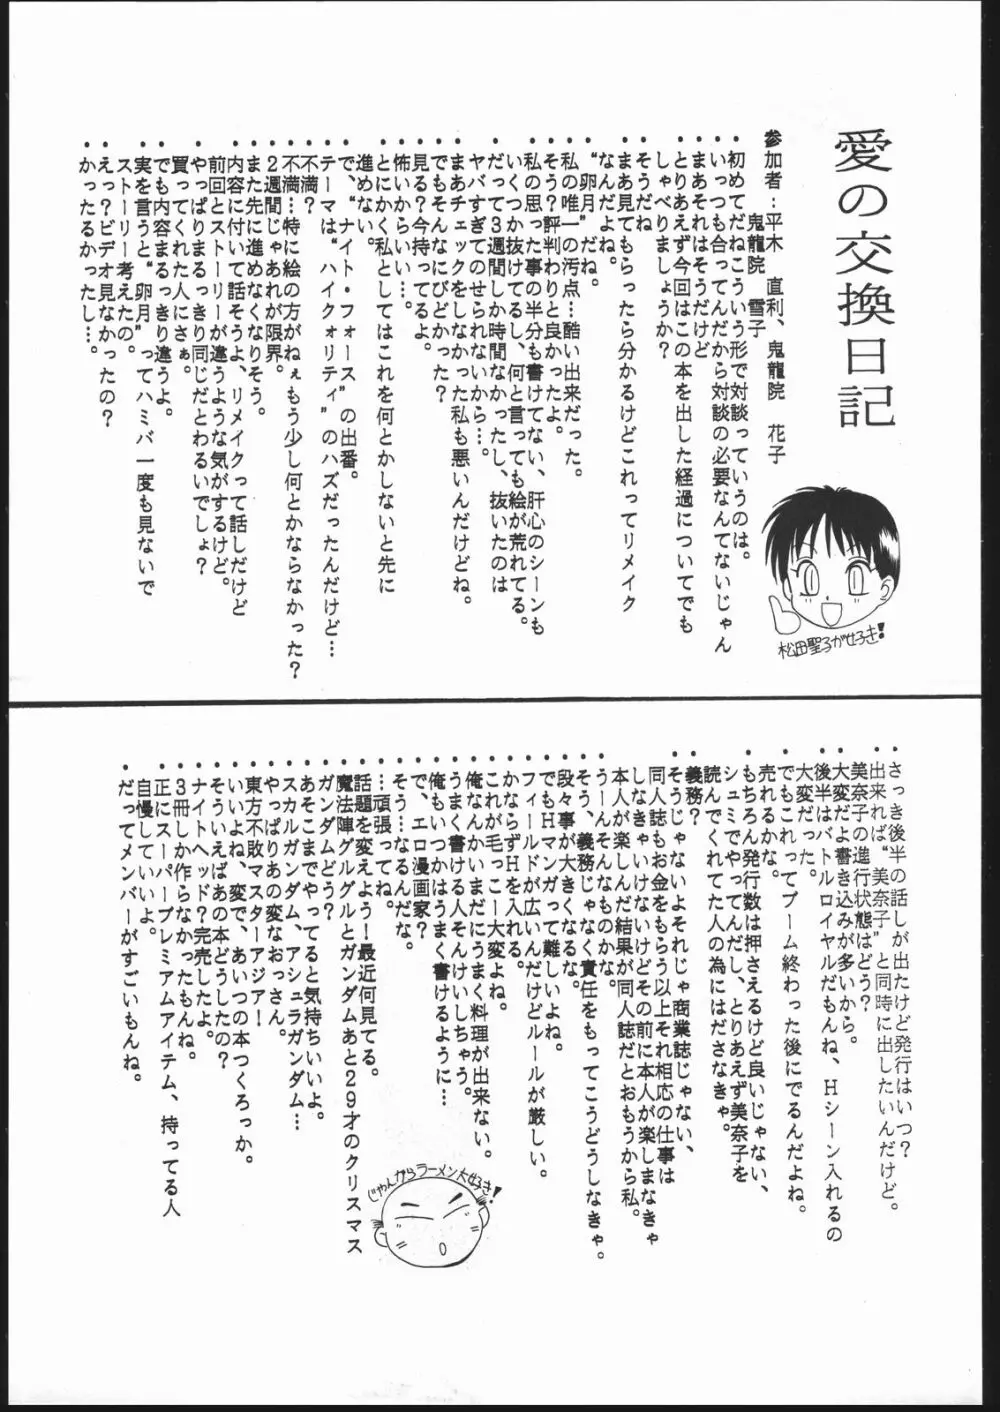 愛の交換日記
参加者：平木　直利、鬼龍院　花子
鬼龍院　雪子
・初めてだねこういう形で対談っていうのは。
・いっつも合ってんだから対談の必要なんてないじゃん
・まあそれはそうだけど
・とりあえず今回はこの本を出した経過についてでも
しゃべりましょうか？
・そうだね
・まあ見てもらったら分かるけどこれってリメイク
なんだよね。
・“卯月”だね。
・私の唯一の汚点…酷い出来だった。
・そう？評判わりと良かったよ。
・私の思った事の半分も書けてない、肝心のシーンも
いくつか抜けてるし、何と言っても絵が荒れてる。
・だって３週間しか時間なかったし、抜いたのは
ヤバすぎてのせられないから…。
・まあチェックをしなかった私も悪いんだけどね。
・でもそんなにひどかった？
・見る？今持ってるよ。
・怖いからいい…。
・とにかく私としてはこれを何とかしないと先に
進めない。
・で、“ナイト・フォース”の出番。
・テーマは“ハイクォリティ”のハズだったんだけど…
・不満？
・不満…特に絵の方がねぇもう少し何とかならなかった？
・２週間じゃあれが限界。
・また先に進めなくなりそう。
・内容に付いて話そうよ、リメイクって話しだけど
前回とストーリーが違うような気がするけど。
・やっぱりまるっきり同じだとわるいでしょ？
買ってくれた人にさぁ。
・でも内容まるっきり違うよ。
・実を言うと“卯月”ってハミバー度も見ないで
ストーリー考えたの。
・えっ？ビデオ見なかったの？
・かったるかったし…。
松田聖子がせろき！
・さっき後半の話しが出たけど発行はいつ？
・出来れば“美奈子”と同時に出したいんだけど。
・美奈子の進行状態はどう？
・大変だよ書き込みが多いから。
・後半はバトルロイヤルだもんね、Ｈシーン入れるの
大変だった。
・でもこれってブーム終わった後にでるんだよね。
・売れるかな。
・もちろん発行数は押さえるけど良いじゃない、
シュミでやってんだし、とりあえず美奈子を
読んでくれてた人の為にはださなきゃ。
・義務？
・そうじゃないよそれじゃ商業誌じゃない、
・同人誌もお金をもらう以上それ相応の仕事は
しなきゃいけないけどその前に本人が楽しまなきゃ
本人が楽しんだ結果が同人誌だとおもうから私。
・うーんそんなものかな。
・そう、義務じゃなく責任をもってこうどうしなきゃ。
・段々事が大きくなるな。
・でもＨマンガって難しいよね。
・フィールドが広いんだけどルールが厳しい。
・かならずＨを入れる。
・これが毛っこー大変よね。
・俺なんかいまだにうまく料理が出来ない。
・うまく書ける人そんけいしちゃう。
・俺もいつかはうまく書けるように…
・で、エロ漫画家？
・そう…なるんだな。
・…頑張ってね。
・話題を変えよう！最近何見てる。
・魔法陣グルグルとガンダムあと２９才のクリスマス
・ガンダムどう？
・あそこまでやってると気持ちいいよ。
・スカルガンダム、アシュラガンダム…
・やっぱりあの変なおっさん。
・東方不敗マスターアジア！
・いいよね、変で、あいつの本つくろっか。
・そういえばあの本どうしたの？
・ナイトヘッド？完売したよ。
・３冊しか作らなかったもんね。
・正にスーパープレミアムアイテム、持ってる人
自慢していいよ。
・だってメンバーがすごいもんね。
じゃんがらラーメン大せろき！